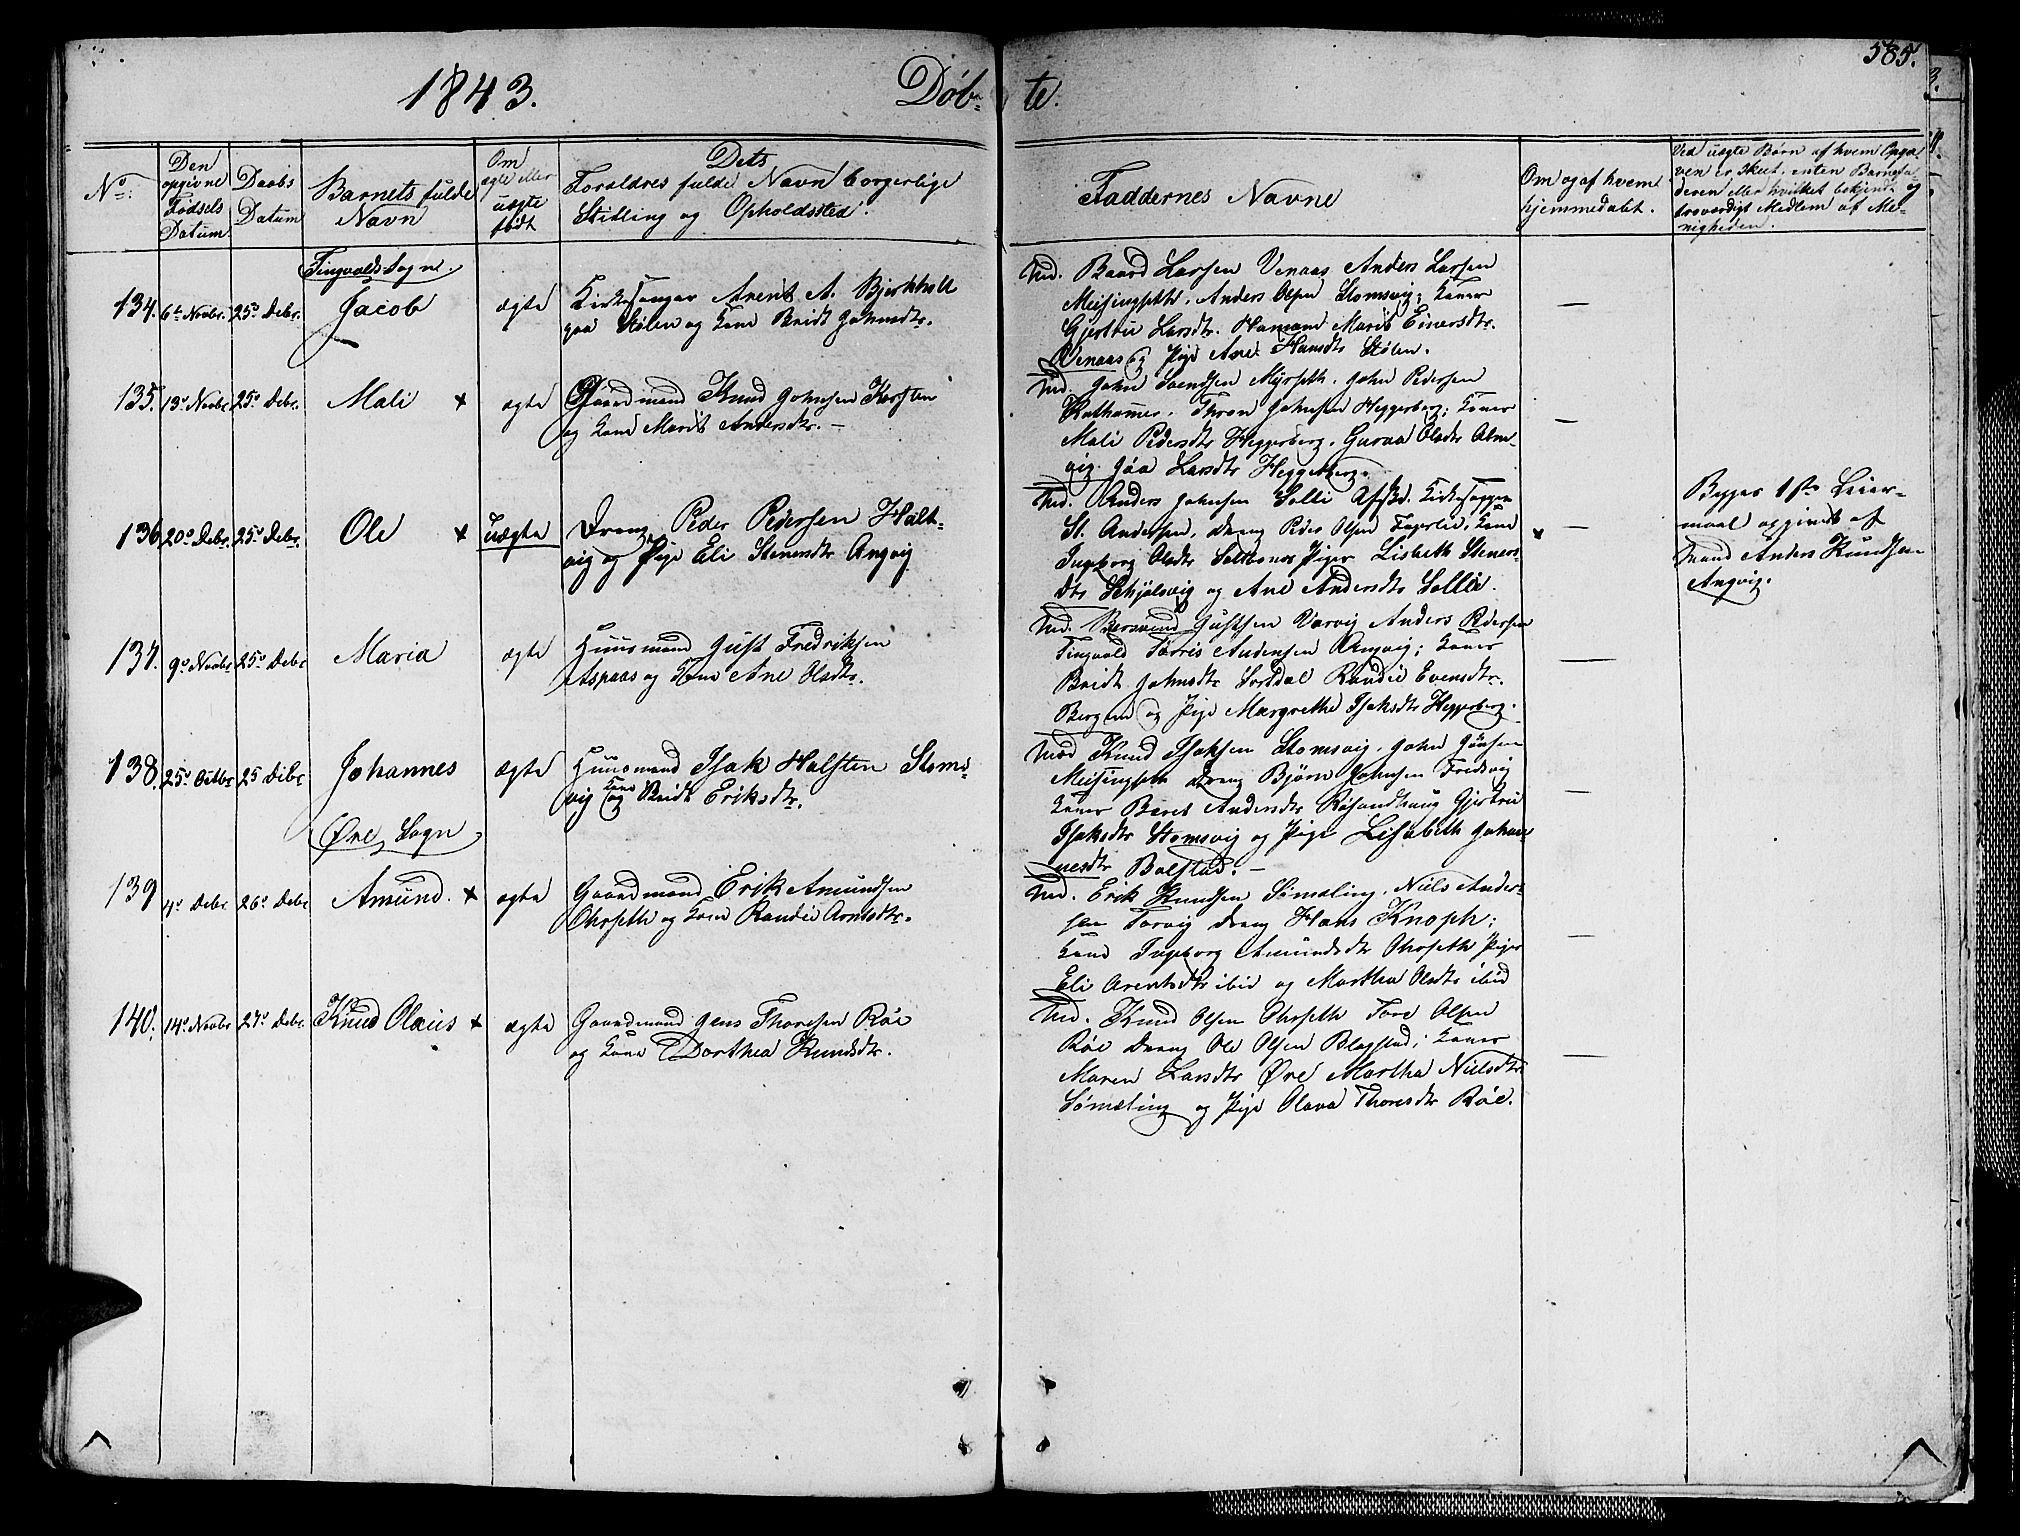 585.
1843. Døb- te.
No.
Den opgivne Fødsels Datum
Daabs Datum
Barnets fulde Navn
Om ægte eller uægte født
Dets Forældres fulde Navn borgerlige Stilling og Opholdssted.
Faddernes Navne
Om og af hvem hjemmedøbt.
Ved uægte Børn af hvem Opgaven er skeet, enten Barnefaderen eller hvilket bekjendt og troværdigt Medlem af Menigheden.
Tingvolds Sogn.
134. 6te Novbr. 25de Debr. Jacob ægte
Kirkesanger Arent A. Bjerkholt
paa Stølen og Kone Bridt Johnsdtr.
Md. Baard Larsen Venaas Anders Larsen
Meisingsethr. Anders Olsen Stomsvig; Koner
Gjertrue Larsdtr. Hamand Marit Einersdtr.
Venaas og Pige Ane Hansdtr Stølen.
135. 13de Novbr 25de Debr. Mali x ægte
Gaardmand Knud Johnsen Karsten
og Kone Marit Andersdtr. —
Md. John Svendsen Myrseth. John Pedersen
Rathammer. Thron Johnsen Heggerberg; Koner
Mali Pedersdtr Heggerberg. Guroa Olsdtr Alm-
vig. Jøa Larsdtr Heggerberg.
136 20de Debr. 25de Debr. Ole x uægte
Dreng Peder Pedersen Holt-
vig og Pige Eli Stenersdtr Angvig
Md. Anders Johnsen Solli Afskd. Kirkesanger
St. Andersen, Dreng Peder Olsen Fagerlie; Kone
Ingeborg Olsdtr Saltbones Piger Lisbeth Steners-
dtr Schjølsvig og Ane Andersdtr Sollie.
x
Begges 1ste Leier-
maal opgivet af
Mand Anders Knudsen
Angvig.
137. 9de Novbr 25de Debr Maria ægte
Huusmand Gust Fredriksen
Aspaas og Kone Ane Olsdtr.
Md. Bersvend Gustsen Vorvig Anders Pedersen
Tingvold Torris Andersen Angvig; Koner
Bridt Johnsdtr Sordal Randie Evensdtr.
Bergem og Pige Margrethe Isaksdtr Heggerberg.
138. 25de Octbr 25 Debr Johannes ægte
Huusmand Isak Halsten Stoms-
vig og Kone Bridt Eriksdtr.
Med Knud Isaksen Stomsvig. John Jonsen
Meisingseth Dreng Bjørn Johnsen Fredsvig
Koner Beret Andersdtr Røsandhaug Gjertrue
Isaksdtr Stomsvig og Pige Lisabeth Johan-
nesdtr Bolstad. —
Øre Sogn
139 4de Debr 26de Debr Amund. x ægte
Gaardmand Erik Amundsen
Ohrseth og Kone Randie Arntsdtr.
Md. Erik Knudsen Sømeling. Niels Ander-
sen Torvig Dreng Hans Knoph;
Kone Ingeborg Amundsdtr Ohrseth Piger
Eli Arentsdtr ibid og Martha Olsdtr ibid
140. 14de Novbr 27de Debr. Knud Olaus x ægte
Gaardmand Jens Thoresen Røe
og Kone Dorthea Knudsdtr.
Md. Knud Olsen Ohrseth Tore Olsen
Røe Dreng Ole Olsen Blegstad; Koner
Maren Larsdtr Øre Martha Nielsdtr
Sømeling og Pige Olava Thoresdtr Røe.